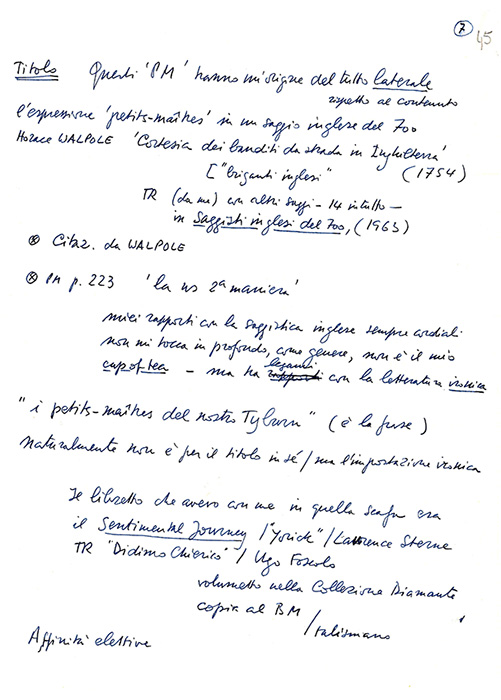 7
45
Titolo Questi 'PM' hanno un'origine del tutto laterale
rispetto al contenuto
l'espressione 'petits-maîtres' in un saggio inglese del 700
Horace WALPOLE 'Cortesia dei banditi da strada in Inghilterra'
["briganti inglesi" (1754)
TR (da me) con altri saggi - 14 in tutto -
in Saggisti inglesi del 700, (1963)
⊗ Citaz. da WALPOLE
⊗ PM p. 223 'la ns 2ª maniera'
miei rapporti con la saggistica inglese sempre cordiali
non mi tocca in profondo, come genere, non è il mio
legami
cup of tea - ma ha rapporti con la letteratura ironica
"i petits-maîtres del nostro Tyburn" (è la frase)
naturalmente non è per il titolo in sé / ma l'impostazione ironica
Il libretto che avevo con me in quella era
il Sentimental Journey / "Yorick" / Lawrence Sterne
TR "Didimo Chierico" / Ugo Foscolo
volumetto nella Collezione Diamante
copia al BM
/ talismano
Affinità elettive